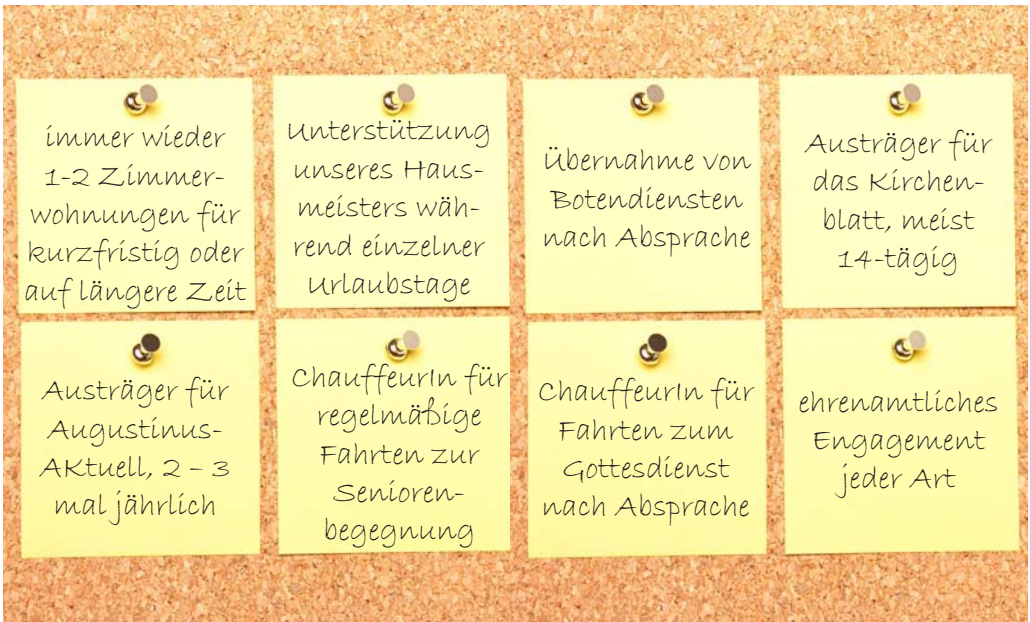 immer wieder
1-2 Zimmer-
wohnungen für
kurzfristig oder
auf längere Zeit
Unterstützung
unseres Haus-
meisters wäh-
rend einzelner
Urlaubstage
Übernahme von
Botendiensten
nach Absprache
Austräger für
das Kirchen-
blatt, meist
14-tägig
Austräger für
Augustinus-
AKtuell, 2 – 3
mal jährlich
ChauffeurIn für
regelmäßige
Fahrten zur
Senioren-
begegnung
ChauffeurIn für
Fahrten zum
Gottesdienst
nach Absprache
ehrenamtliches
Engagement
jeder Art